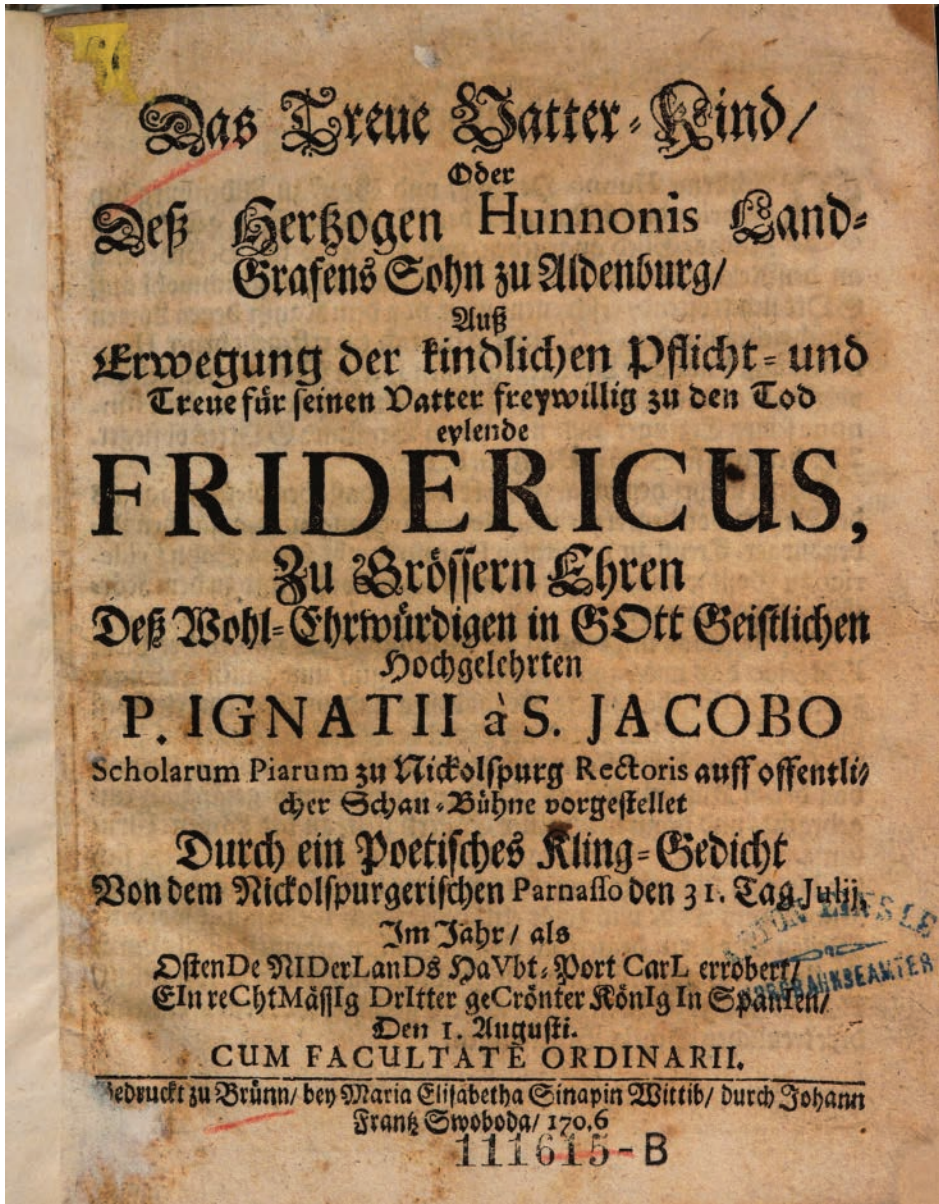 Das Treue Vatter-Kind/
Oder
Deß Hertzogen Hunnonis Land-
Grafens Sohn zu Aldenburg/
Auß
Erwegung der kindlichen Pflicht- und
Treue für seinen Vatter freywillig zu den Tod
eylende
FRIDERICUS,
Zu Grössern Ehren
Deß Wohl-Ehrwürdigen in GOtt Geistlichen
Hochgelehrten
P. IGNATII à S. JACOBO
Scholarum Piarum zu Nickolspurg Rectoris auff offentli-
cher Schau-Bühne vorgestellet
Durch ein Poetisches Kling-Gedicht
Von dem Nickolspurgerischen Parnasso den 31. Tag Julij,
Im Jahr/ als
OstenDe NIDerLanDs HaVbt-Port CarL errobert/
EIn reChtMässIg DrItter geCrönter KönIg In SpanIen/
Den 1. Augusti.
CUM FACULTATE ORDINARII.
Gedruckt zu Brünn/ bey Maria Elisabetha Sinapin Wittib/ durch Johann
Frantz Swoboda/ 170.6
111615-B